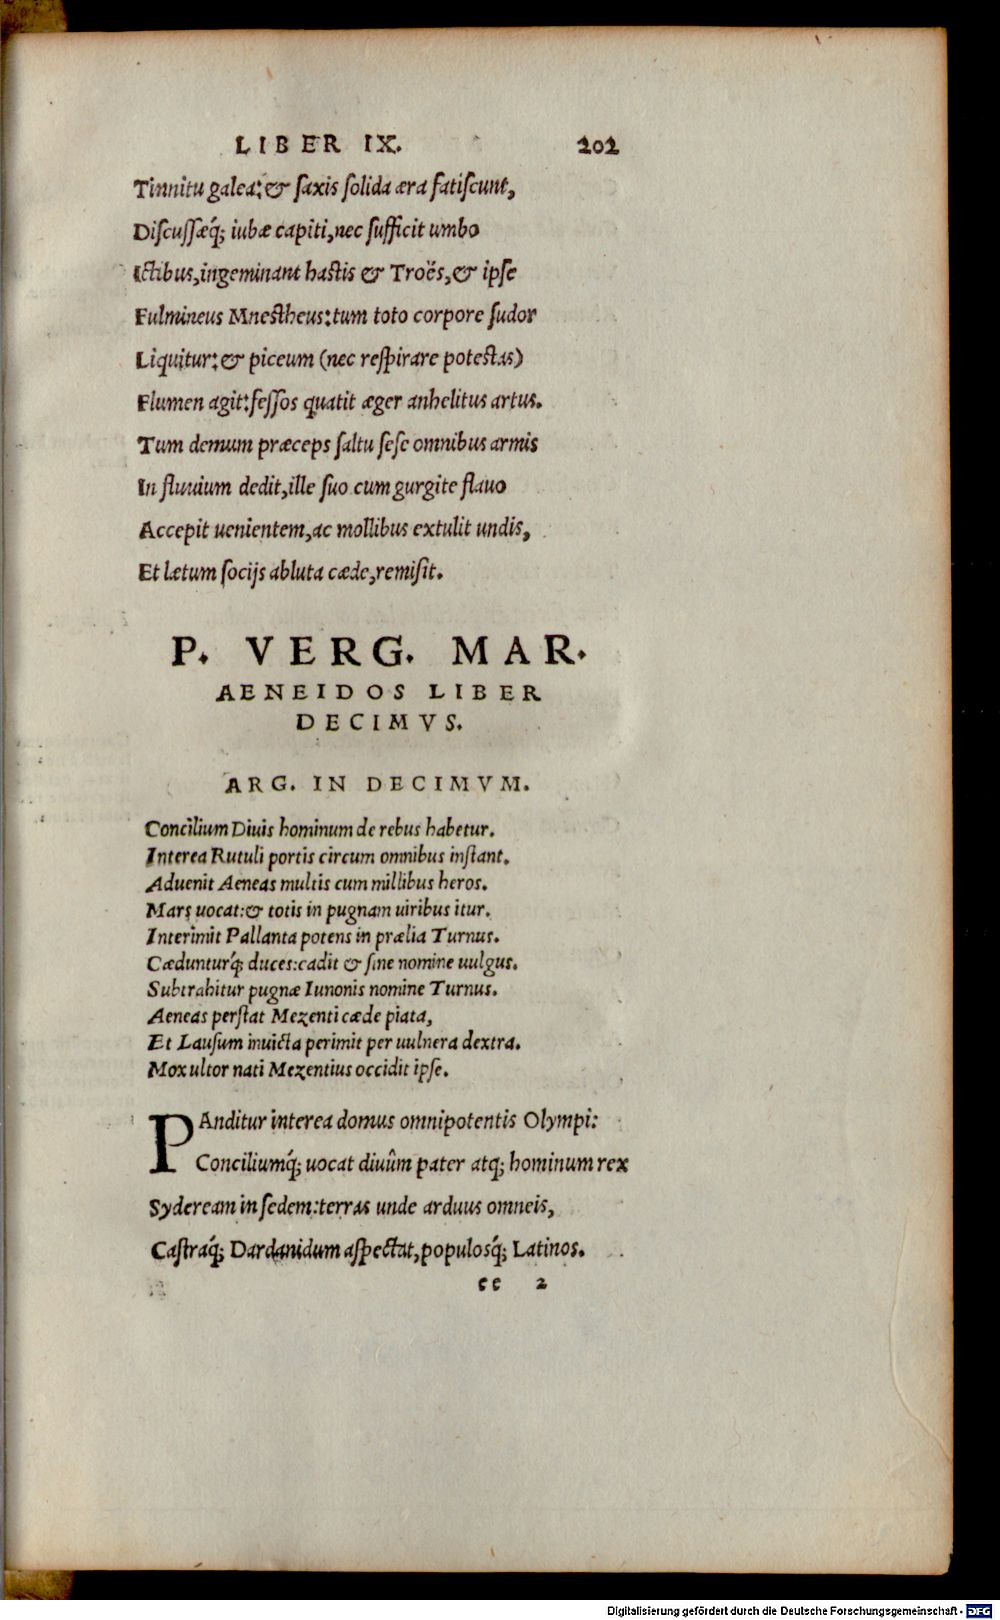 LIBER IX. 202
Tinnitu galea: & saxis solida æra fatiscunt,
Discussæq́; iubæ capiti, nec sufficit umbo
Ictibus, ingeminant hastis & Troës, & ipse
Fulmineus Mnestheus: tum toto corpore sudor
Liquitur: & piceum (nec respirare potestas)
Flumen agit: fessos quatit æger anhelitus artus.
Tum demum præceps saltu sese omnibus armis
In fluuium dedit, ille suo cum gurgite flauo
Accepit uenientem, ac mollibus extulit undis,
Et lætum socijs abluta cæde, remisit.
P. VERG. MAR.
AENEIDOS LIBER
DECIMVS.
ARG. IN DECIMVM.
Concilium Diuis hominum de rebus habetur.
Interea Rutuli portis circum omnibus instant.
Aduenit Aeneas multis cum millibus heros.
Mars uocat: & totis in pugnam uiribus itur.
Interimit Pallanta potens in prælia Turnus.
Cædunturq́; duces: cadit & sine nomine uulgus.
Subtrahitur pugnæ Iunonis nomine Turnus.
Aeneas perstat Mezenti cæde piata,
Et Lausum inuicta perimit per uulnera dextra.
Mox ultor nati Mezentius occidit ipse.
PAnditur interea domus omnipotentis Olympi:
Conciliumq́; uocat diuûm pater atq; hominum rex
Sydeream in sedem: terras unde arduus omneis,
Castraq́; Dardanidum aspectat, populosq́; Latinos.
cc 2
Digitalisierung gefördert durch die Deutsche Forschungsgemeinschaft - DFG